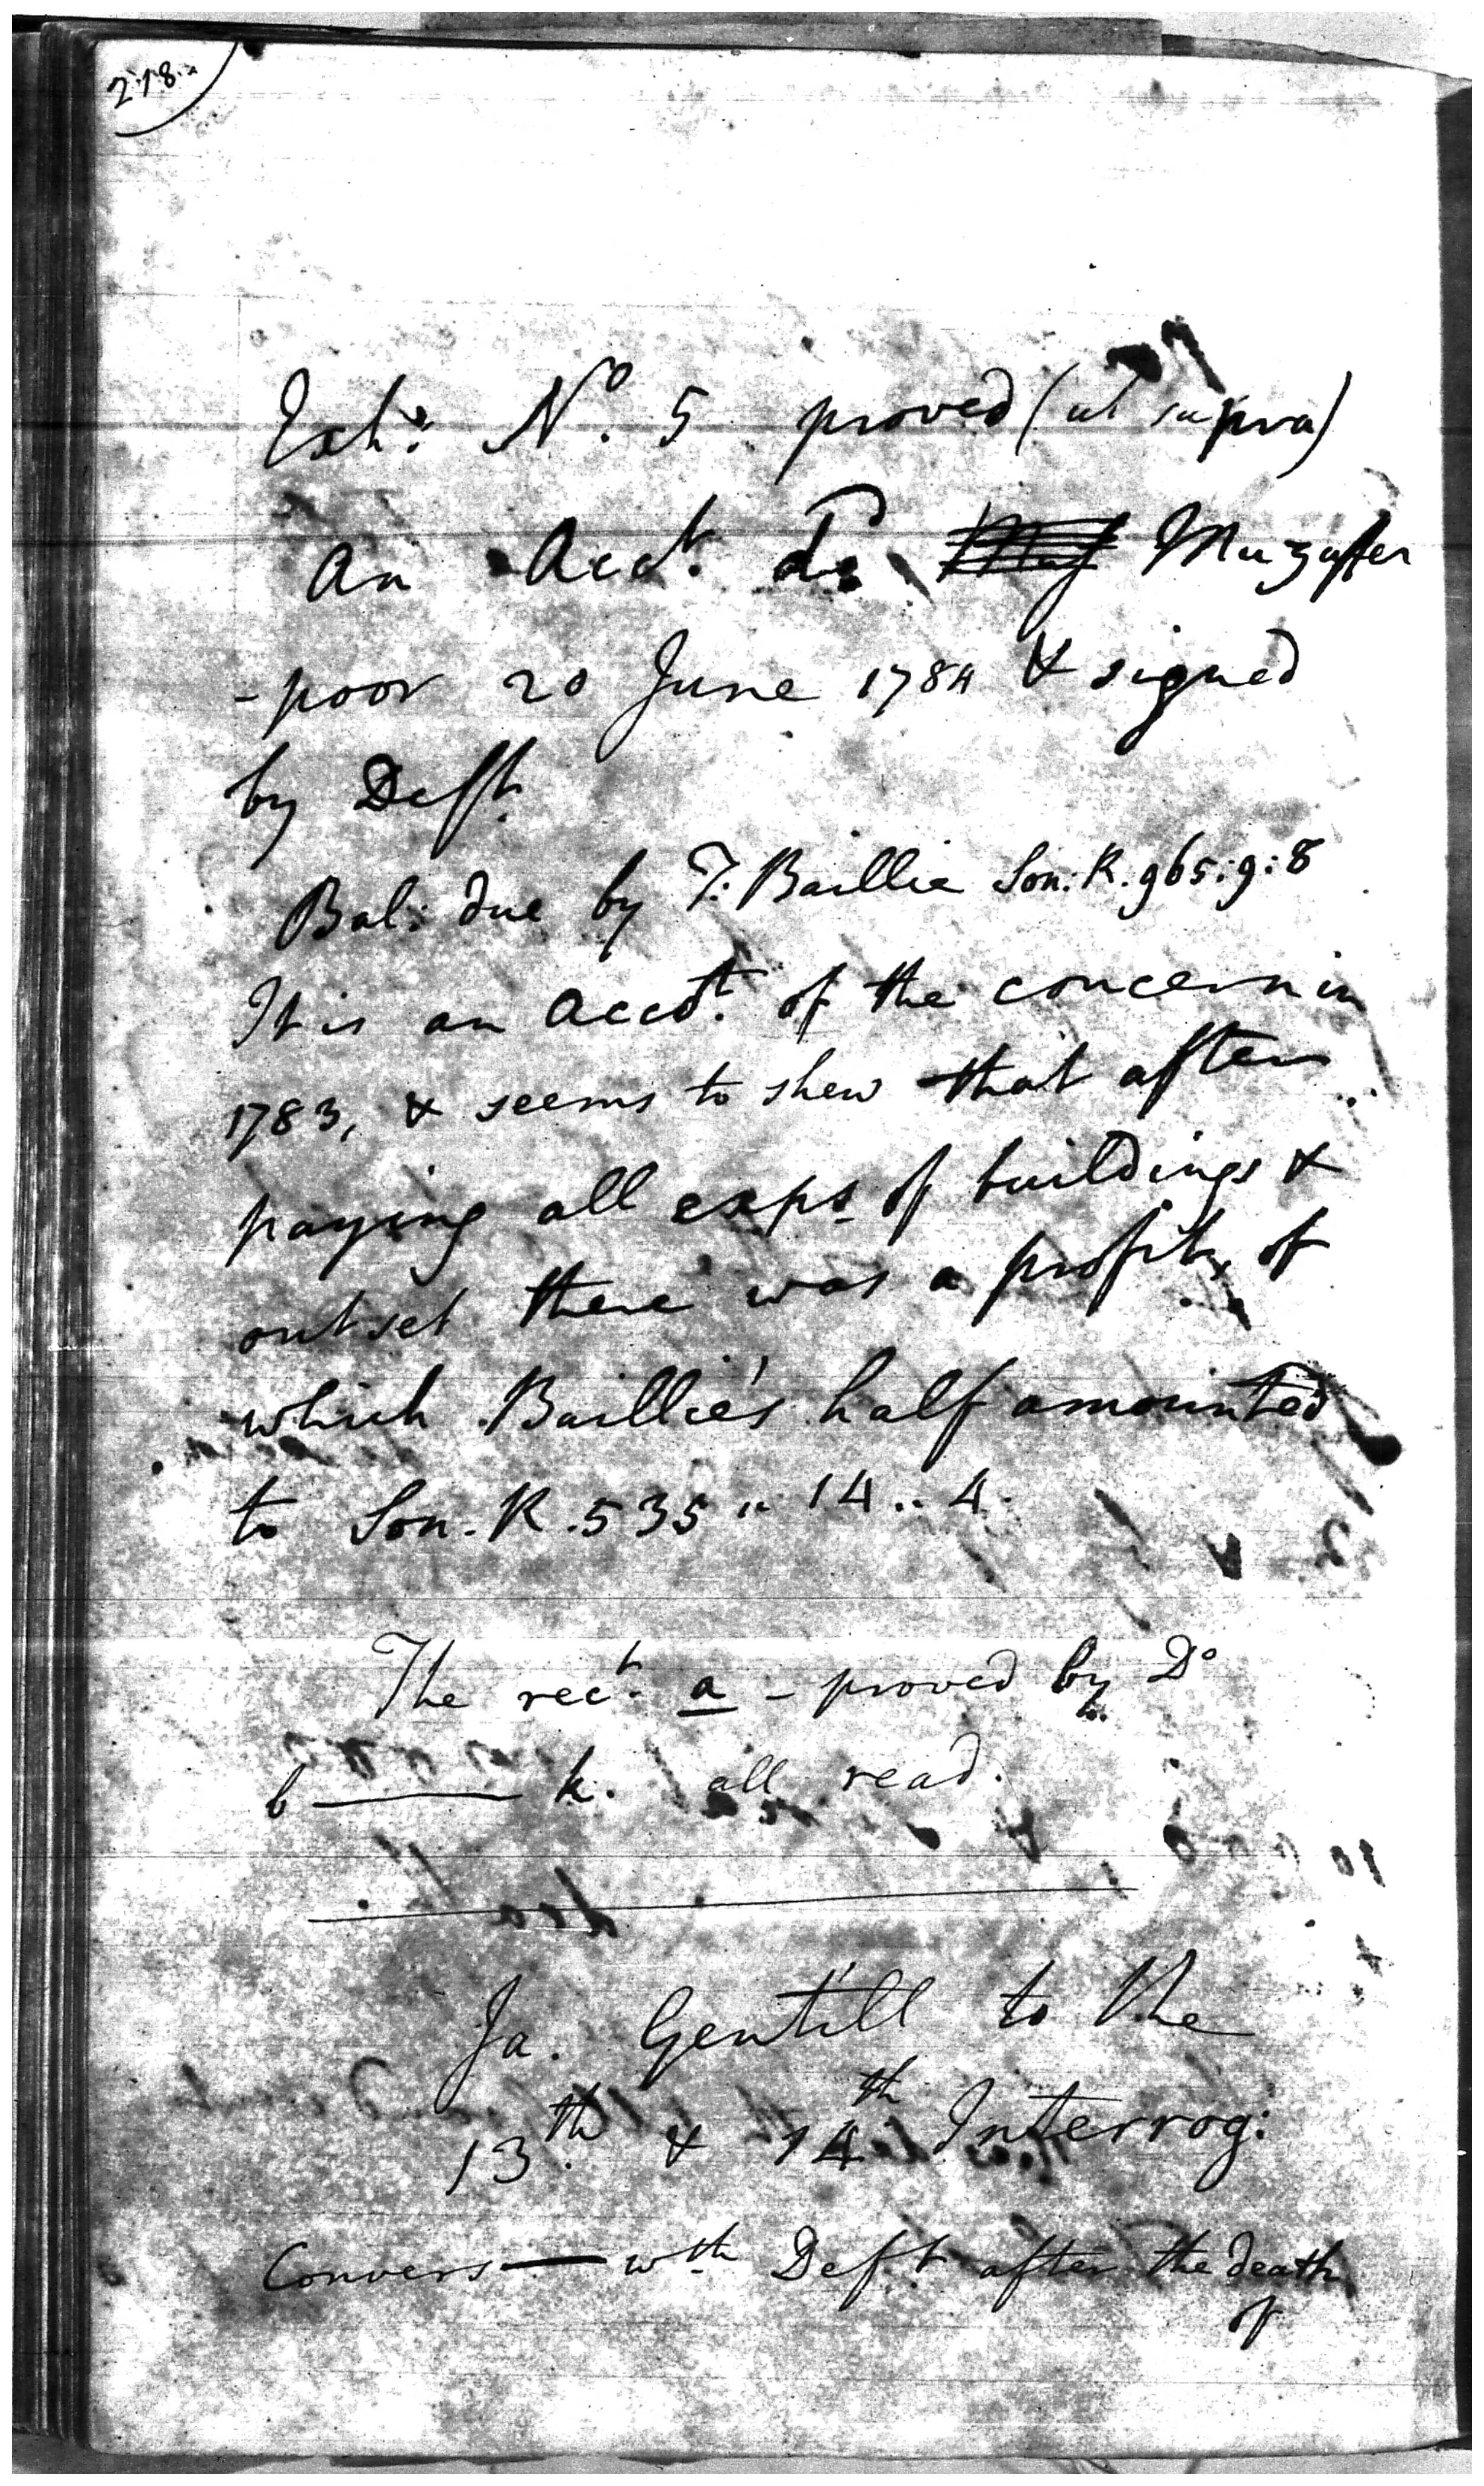 218.
Exh: No. 5 proved (ut supra)
An Acct. dd Muzuffer
-poor 20 June 1784 & signed
by Deft.
Bal: due by T. Baillie Son: R. 965:9:8
It is an Acct. of the concern in
1783, & seems to shew that after
paying all exps of buildings &
outset there was a profit, of
which Baillie's half amounted
to Son. R. 535 " 14 .. 4.
The rect. a - proved by Do
b ——— k. all read.
Ja. Gentill to the
13th. & 14th Interrog:
Convers— wth Deft after the death
of